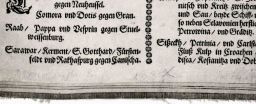 gegen Neuheusel.
Comorra und Dotis gegen Gran.
Raab / Pappa und Vesprin gegen Stuel-
weissenburg.
Sarawar / Kerment / S. Gotthard / Fürsten-
feldt und Rakhaspurg gegen Canischa.
nisch und Kreitz zwischen
und Sau / beyde Scheff-
te neben Selavonien herfli
Petrowina / und Gräditz.
Sißeckh / Petrinia / und Carlst
Fluß Kulp in Croatien
disca / Kostaniza und Dobi